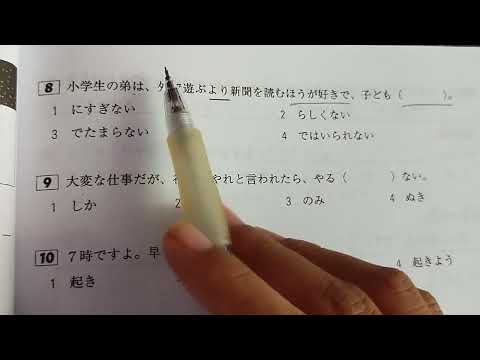 8 小学生の弟は、外で遊ぶより新聞を読むほうが好きで、子ども（　　）。
1 にすぎない 2 らしくない
3 でたまらない 4 ではいられない
9 大変な仕事だが、 やれと言われたら、やる（　　）ない。
1 しか 2 3 のみ 4 ぬき
10 7時ですよ。早
1 起き 4 起きよう